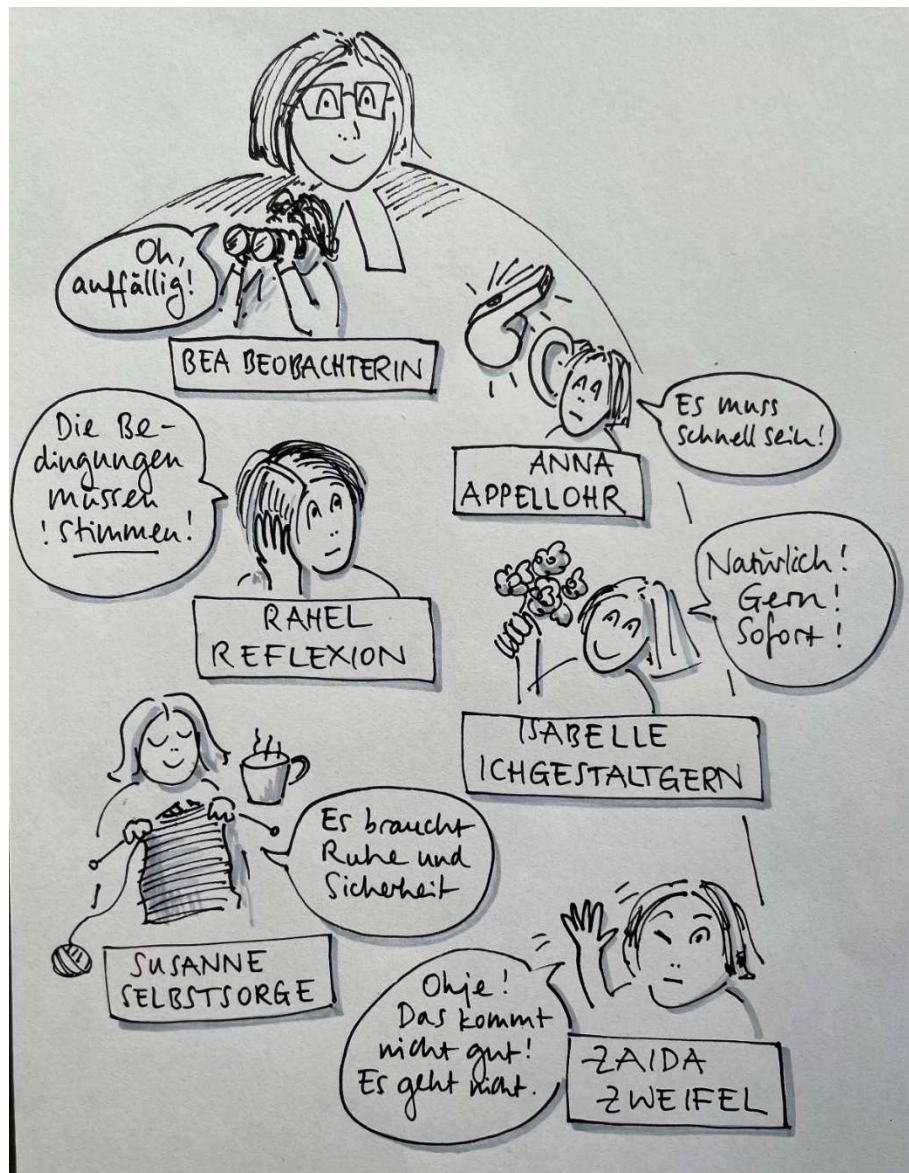 Oh,
auffällig!
BEA BEOBACHTERIN
Es muss
schnell sein!
ANNA
APPELLOHR
Die Be-
dingungen
müssen
! stimmen!
RAHEL
REFLEXION
Natürlich!
Gern!
Sofort!
ISABELLE
ICHGESTALTGERN
Es braucht
Ruhe und
Sicherheit
SUSANNE
SELBSTSORGE
Ohje!
Das kommt
nicht gut!
Es geht nicht.
ZAIDA
ZWEIFEL